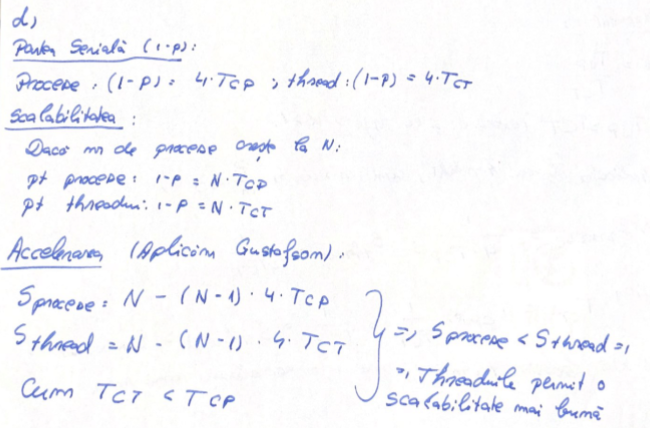 d)
Partea Serială (1-p):
Procese: (1-p) = 4·TCP ; thread: (1-p) = 4·TCT
Scalabilitatea:
Dacă nr de procese crește la N:
pt procese: 1-p = N·TCP
pt threaduri: 1-p = N·TCT
Accelerarea (Aplicăm Gustafson):
Sprocese = N - (N-1)·4·TCP
Sthread = N - (N-1)·4·TCT
Cum TCT < TCP
=> Sprocese < Sthread =>
=> Threadurile permit o
scalabilitate mai bună